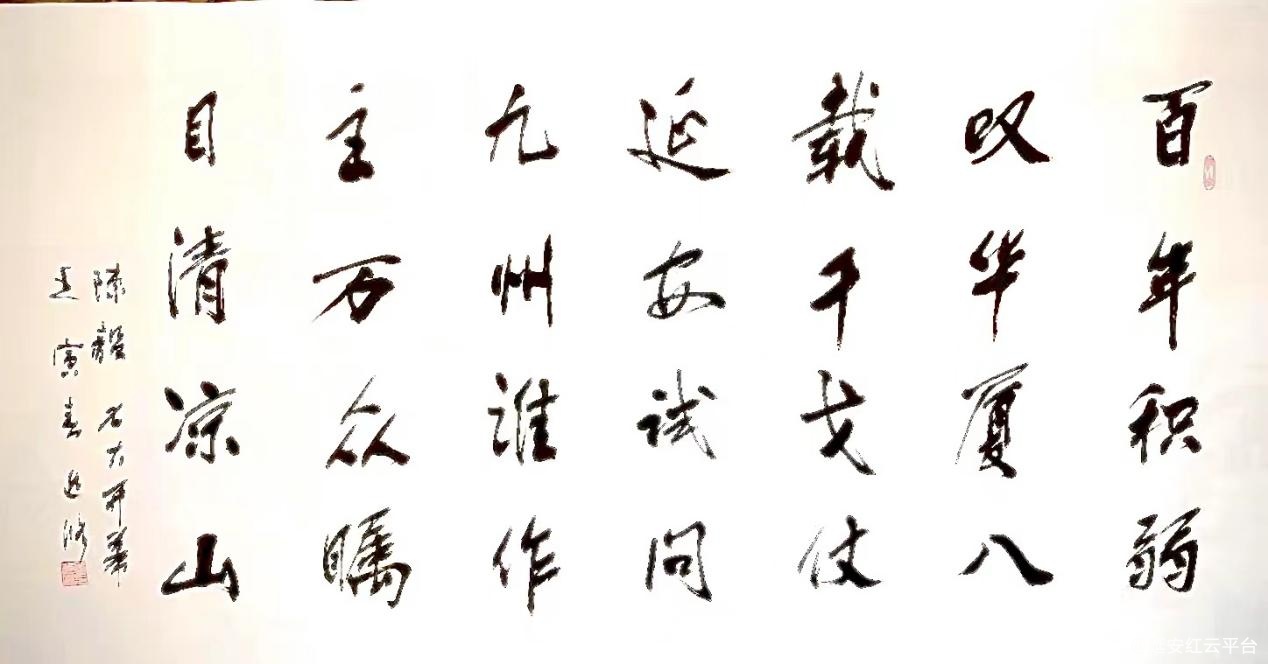 百年积弱
叹华夏八
载干戈仗
延安试问
九州谁作
主万众瞩
目清凉山
陈毅
寅春
安红云平台